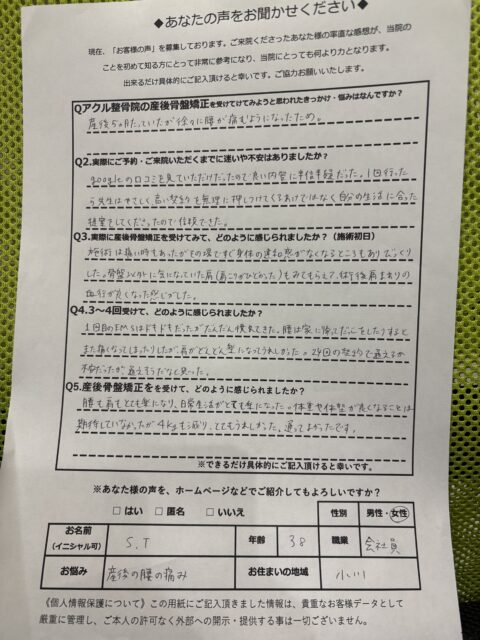 ◆あなたの声をお聞かせください◆
現在、「お客様の声」を募集しております。ご来院くださったあなた様の率直な感想が、当院の
ことを初めて知る方にとって非常に参考になり、当院にとっても何より力となります。
出来るだけ具体的にご記入頂けると幸いです。ご協力お願いいたします。
Qアクル整骨院の産後骨盤矯正を受けてみようと思われたきっかけ・悩みはなんですか？
産後5ヵ月たっていたが徐々に腰が痛むようになったため。
Q2.実際にご予約・ご来院いただくまでに迷いや不安はありましたか？
googleの口コミを見ていただけだったので良い内容に半信半疑だった。1回行った
ら先生はやさしく高い契約を無理に押しつけてくるわけではなく自分の生活に合った
提案をしてくださったので信頼できた。
Q3.実際に産後骨盤矯正を受けてみて、どのように感じられましたか？（施術初日）
施術は痛い時もあったがその場ですぐ身体の違和感がなくなるところもありびっくり
した。骨盤以外に気になっていた肩(肩こりがひどかった)もみてもらえて、術後肩まわりの
血行が良くなった感じがした。
Q4.3〜4回受けて、どのように感じられましたか？
1回目のEMSはドキドキだったがだんだん慣れてきた。腰は家に帰って
また痛くなってしまったりしたが、肩がどんどん楽になってうれしかった。24回の契約で通えるか
不安だったが、通えそうだなと思った。
Q5.産後骨盤矯正をを受けて、どのように感じられましたか？
腰も肩もとても楽になり、日常生活がとても楽になった。体重や体型が良くなることは
期待していなかったが4kgも減り、とてもうれしかった。通ってよかったです。
※できるだけ具体的にご記入頂けると幸いです。
※あなた様の声を、ホームページなどでご紹介してもよろしいですか？
□ はい □ 匿名 □ いいえ 性別 男性・女性
お名前（イニシャル可） S.T 年齢 38 職業 会社員
お悩み 産後の腰の痛み お住まいの地域 小川
《個人情報保護について》この用紙にご記入頂きました情報は、貴重なお客様データとして
厳重に管理し、ご本人の許可なく外部への開示・提供する事は一切ございません。